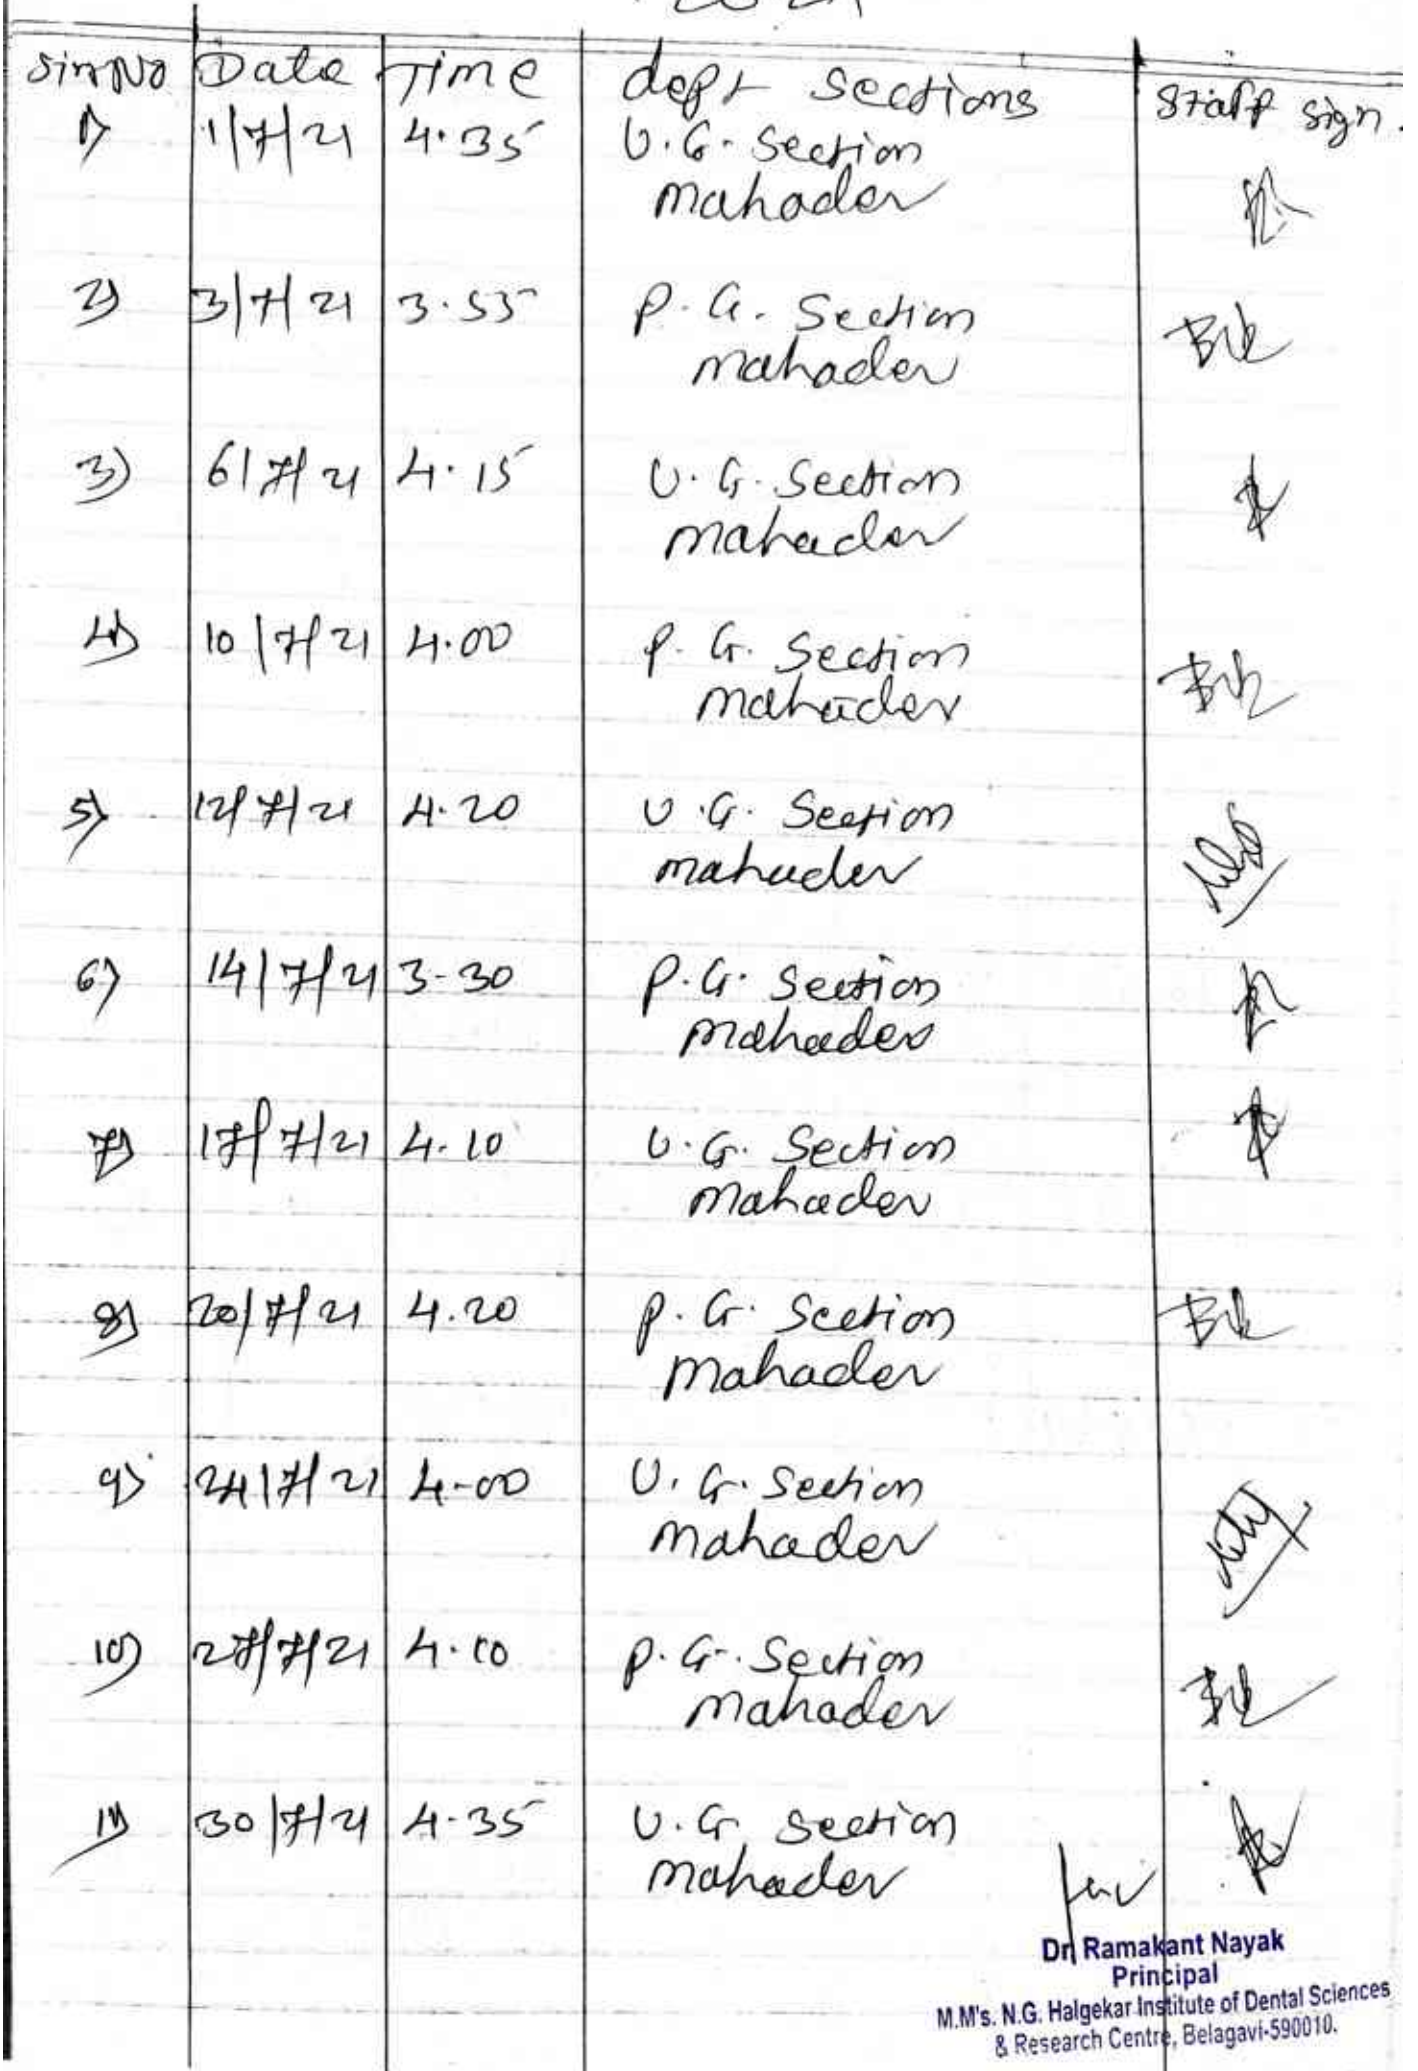 2021
Sir No Date Time dept sections Staff sign.
1) 1/7/21 4.35 U.G. Section
mahadev
2) 3/7/21 3.55 P.G. Section
mahadev
3) 6/7/21 4.15 U.G. Section
mahadev
4) 10/7/21 4.00 P.G. Section
mahadev
5) 12/7/21 4.20 U.G. Section
mahadev
6) 14/7/21 3-30 P.G. Section
mahadev
7) 17/7/21 4.10 U.G. Section
mahadev
8) 20/7/21 4.20 P.G. Section
mahadev
9) 24/7/21 4-00 U.G. Section
mahadev
10) 27/7/21 4.10 P.G. Section
mahadev
11) 30/7/21 4.35 U.G. Section
mahadev
Dr. Ramakant Nayak
Principal
M.M's. N.G. Halgekar Institute of Dental Sciences
& Research Centre, Belagavi-590010.